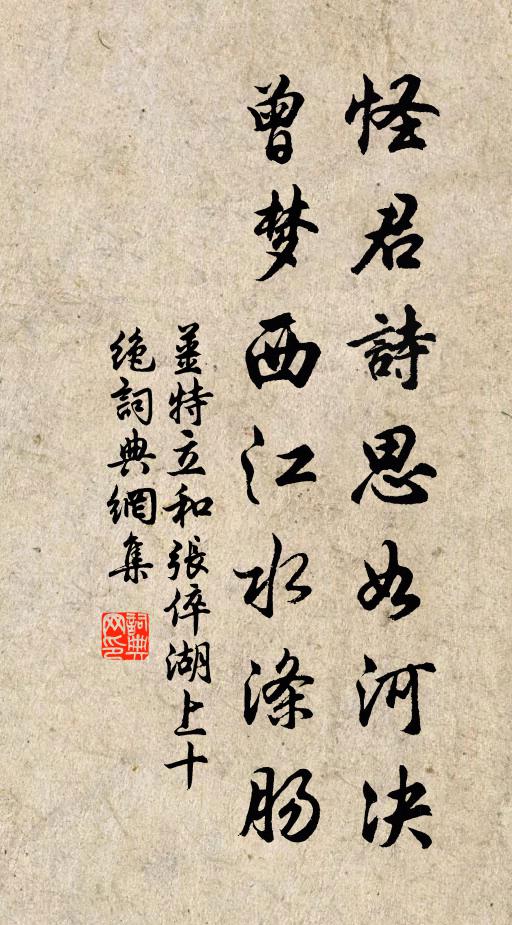 怪君詩思如河决
曾梦西江水滌肠
姜特立和張倅湖上十
绝詞典網集
詞典网印